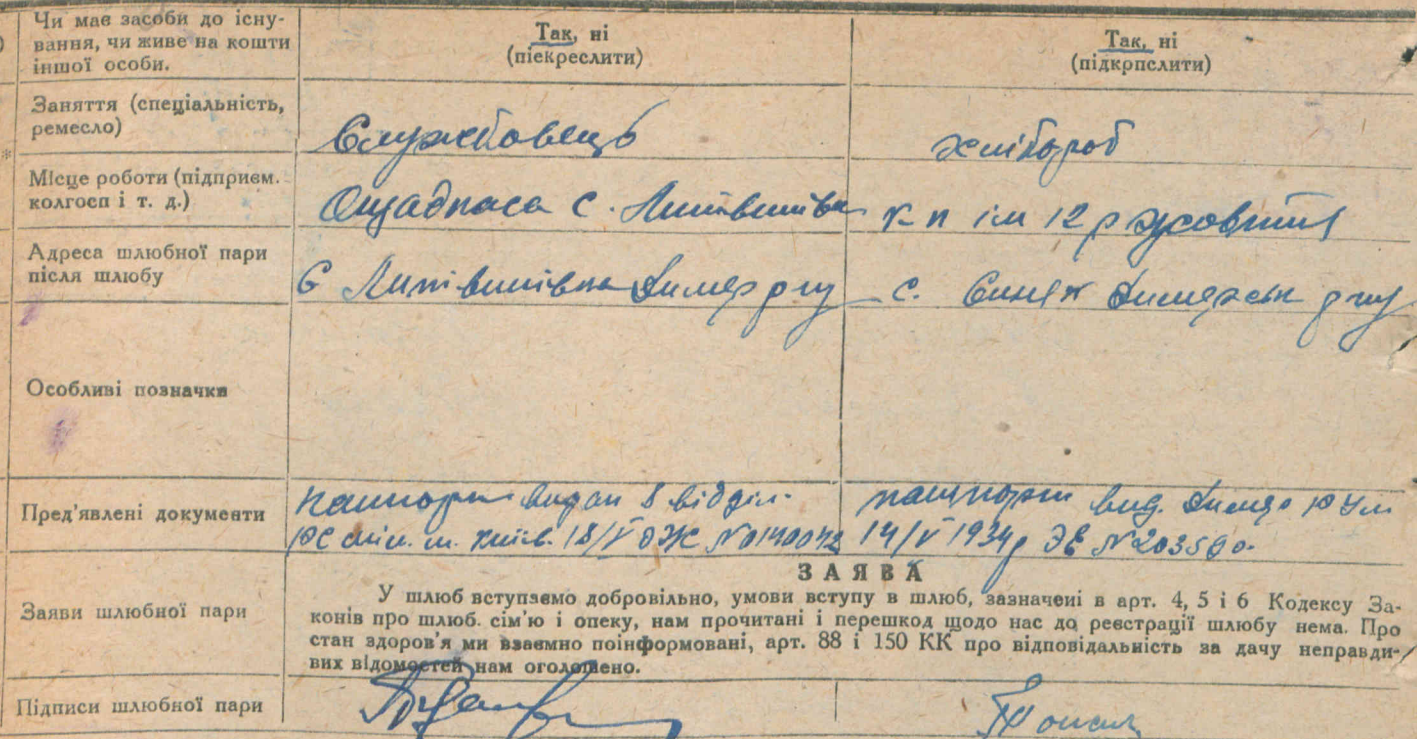 Чи має засоби до існу-
вання, чи живе на кошти
іншої особи.
Так, ні
(піекреслити)
Так, ні
(підкрпслити)
Заняття (спеціальність,
ремесло)
Службовець
хлібороб
Місце роботи (підприєм.
колгосп і т. д.)
Ощадкаса с.
к-п ім 12 р жовтня
Адреса шлюбної пари
після шлюбу
с Димер р-ну
с. Синяк Димерськ р-ну
Особливі позначки
Пред'явлені документи
пашпорт видан 8 відділ.
РС міл. м. Київ. 18/V ОЖ № 0140042
пашпорт вид. Димер
14/V 1934р ЭЕ № 203590.
ЗАЯВА
Заяви шлюбної пари
У шлюб вступаємо добровільно, умови вступу в шлюб, зазначені в арт. 4, 5 і 6 Кодексу За-
конів про шлюб. сім'ю і опеку, нам прочитані і перешкод щодо нас до реєстрації шлюбу нема. Про
стан здоров'я ми взаємно поінформовані, арт. 88 і 150 КК про відповідальність за дачу неправди-
вих відомостей нам оголошено.
Підписи шлюбної пари